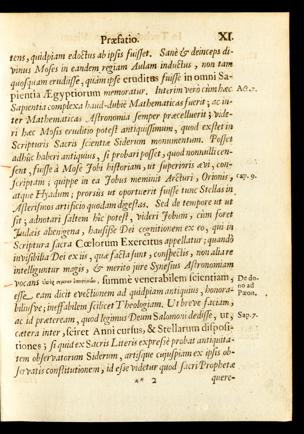 Præfatio. XI.
tens, quidpiam edoctus ab ipsis fuisset. Sanè & deinceps di-
vinus Moses in eandem regiam Aulam inductus, non tam
quosquam erudiisse, quàm ipse eruditus fuisse in omni Sa-
pientia Ægyptiorum memoratur. Interim verò cùm hæc Act. 7.
Sapientia complexa haud-dubiè Mathematicas fuerit; ac in-
ter Mathematicas Astronomia semper præcelluerit; vide-
ri hæc Mosis eruditio potest antiquissimum, quod exstet in
Scripturis Sacris scientiæ Siderum monumentum. Posset
adhuc haberi antiquius, si probari posset, quod nonnulli cen-
sent, fuisse à Mose Jobi historiam, ut superioris ævi, con-
scriptam; quippe in ea Jobus meminit Arcturi, Orionis, cap. 9.
atque Hyadum; prorsùs ut oportuerit fuisse tunc Stellas in
Asterismos artificio quodam digestas. Sed de tempore ut ut
sit; adnotari saltem hîc potest, videri Jobum, cùm foret
Judæis alienigena, hausisse Dei cognitionem ex eo, qui in
Scriptura sacra Cœlorum Exercitus appellatur; quandò
invisibilia Dei ex iis, quæ facta sunt, conspectis, non aliàre
intelliguntur magis, & meritò jure Synesius Astronomiam
vocans summè venerabilem scientiam, De do-
esse eam dicit evectionem ad quidpiam antiquius, honora- no ad
biliusve; ineffabilem scilicet Theologiam. Ut breve faciam, Pæon.
ac id præteream, quod legimus Deum Salomoni dedisse, ut, Sap. 7.
cætera inter, sciret Anni cursus, & Stellarum disposi-
tiones; si quid ex Sacris Literis expresiè probat antiquita-
tem observatorum Siderum, artisque cujuspiam ex ipsis ob-
servatis constitutionem, id esse videtur quod sacri Prophetæ
** 2 quere-